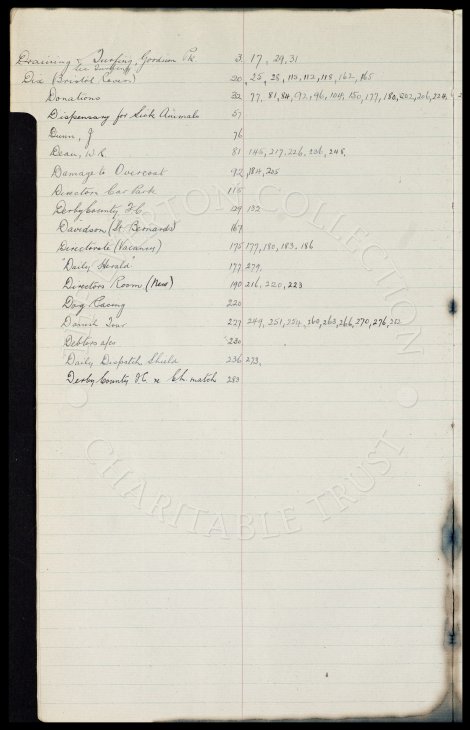 Draining & Turfing, Goodison Pk 3. 17, 29, 31
see Turfing
Dix (Bristol Rovers) 20, 25, 28, 110, 112, 118, 162, 165
Donations 32 77, 81, 84, 92, 96, 104, 150, 177, 180, 202, 206, 224
Dispensary for Sick Animals 57
Dunn, J 76
Dean, W R. 81 145, 217, 226, 236, 248.
Damage to Overcoat 92, 184, 205
Directors Car Park 115
Derby County F.C. 129 132
Davidson (St. Bernards) 167
Directorate (Vacancy) 175 177, 180, 183, 186
"Daily Herald" 177 279.
Directors Room (New) 190 216, 220, 223
Dog Racing 220
Danish Tour 227 249, 251, 254, 260, 263, 266, 270, 276, 282
Debtors a/cs 230
"Daily Dispatch" Shield 236 273.
Derby County F.C. re Ch. match 283
EVERTON COLLECTION
CHARITABLE TRUST